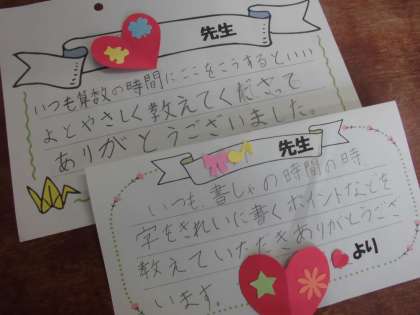 先生
いつも算数の時間にここをこうするといい
よとやさしく教えてくださって
ありがとうございました。
先生
いつも、書しゃの時間の時
字をきれいに書くポイントなどを
教えていただきありがとうござ
います。
より